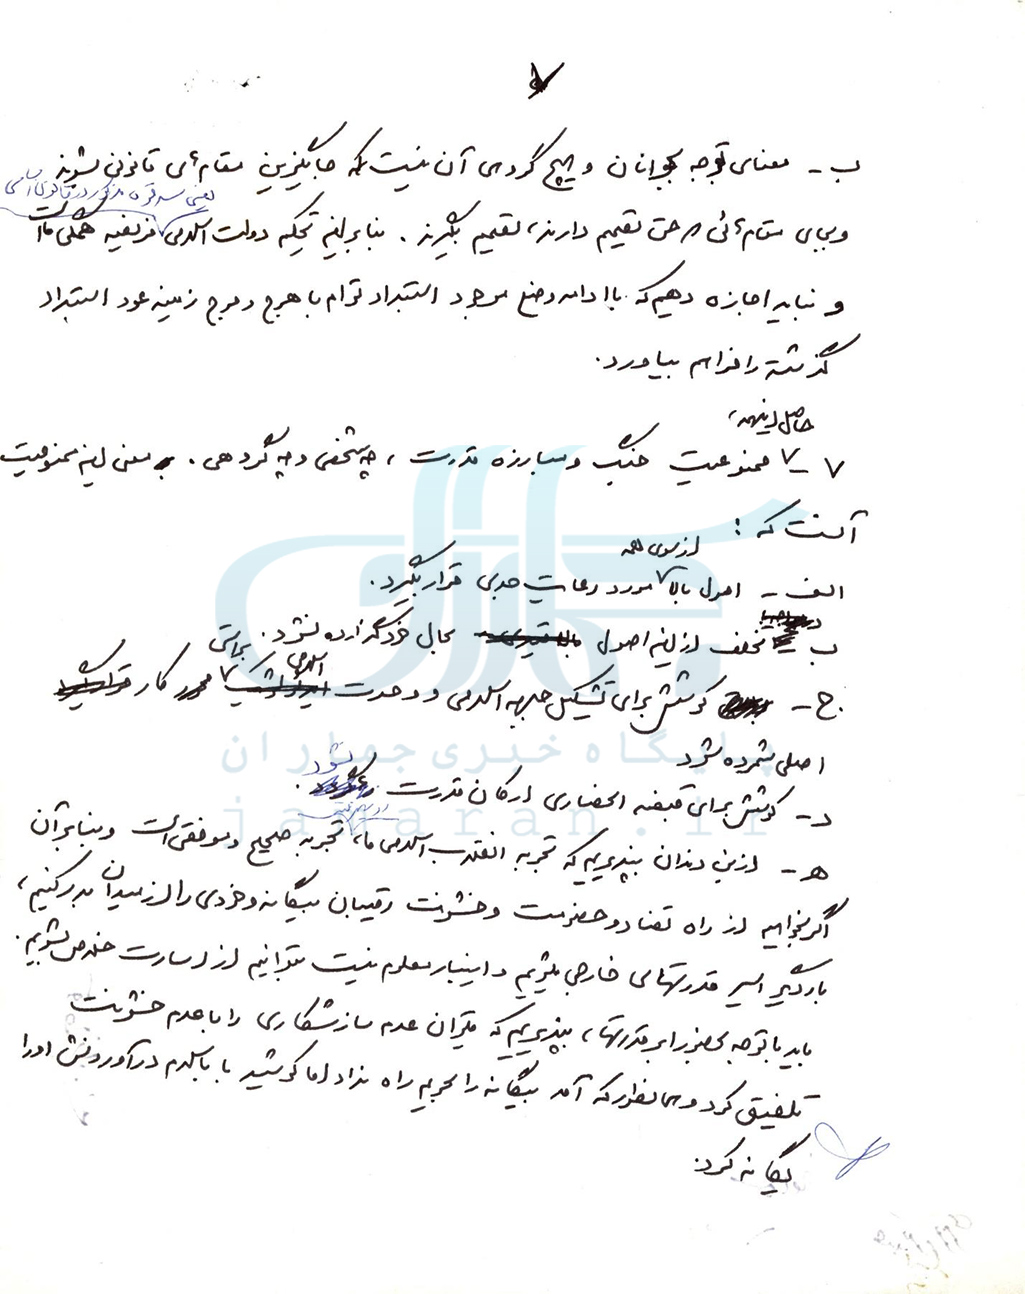 ۷
ب - معنای توجه بجوانان و هیچ گروهی آن نیست که جایگزین مقام های قانونی بشوند
یعنی سه قوه مذکور در قانون اساسی
و بجای مقام هائی که حق تصمیم دارند، تصمیم بگیرند. بنابراین تحکیم دولت اسلامی فریضه همگی ما است
و نباید اجازه دهیم که با ادامه وضع موجود استبداد توام با هرج و مرج زمینه عود استبداد
گذشته را فراهم بیاورد.
حاصل اینهمه،
۷ - ممنوعیت جنگ و مبارزه قدرت، چه شخصی و چه گروهی. معنی این ممنوعیت
آنست که:
از سوی همه
الف - اصول بالا مورد رعایت جدی قرار بگیرد.
ب - تخلف از این اصول بحال خود گذارده نشود.
ج - کوشش برای تشکیل جبهه اسلامی و وحدت اسلامی بجای کار
اصلی شمرده شود
د - کوشش برای قبضه انحصاری ارکان قدرت نشود.
ه - از بن دندان بپذیریم که تجربه انقلاب اسلامی ما، تجربه صحیح و موفقی است و بنابرآن
اگر بخواهیم از راه تضاد و خصومت و خشونت رقیبان بیگانه و خودی را از میدان بدر کنیم،
بار دیگر اسیر قدرتهای خارجی میشویم و اینبار معلوم نیست بتوانیم از اسارت خلاص بشویم.
باید با توجه بحضور ابرقدرتها، بپذیریم که میتوان عدم سازشکاری را با عدم خشونت
تلفیق کرد و همانطور که آمد بیگانه را بحریم راه نداد اما کوشید با باسلام درآوردنش او را
یگانه کرد.
پایگاه خبری جماران
jamaran.ir